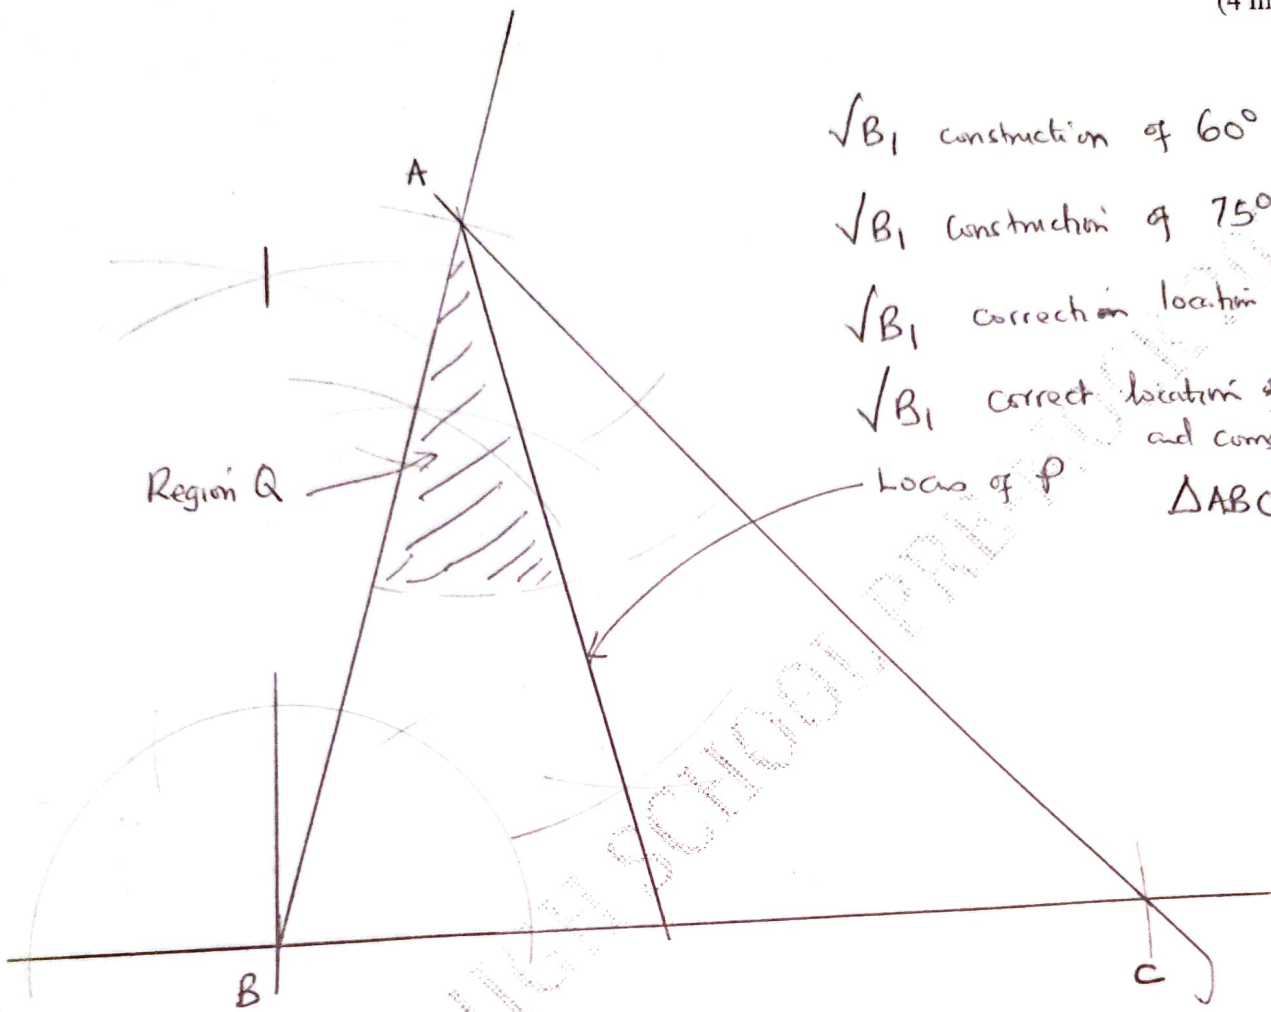 (4 m
A
√B1 construction of 60°
√B1 construction of 75°
√B1 correction location
√B1 correct location
and com
Region Q
Locus of P
ΔABC
B
C
HIGH SCHOOL PRE-